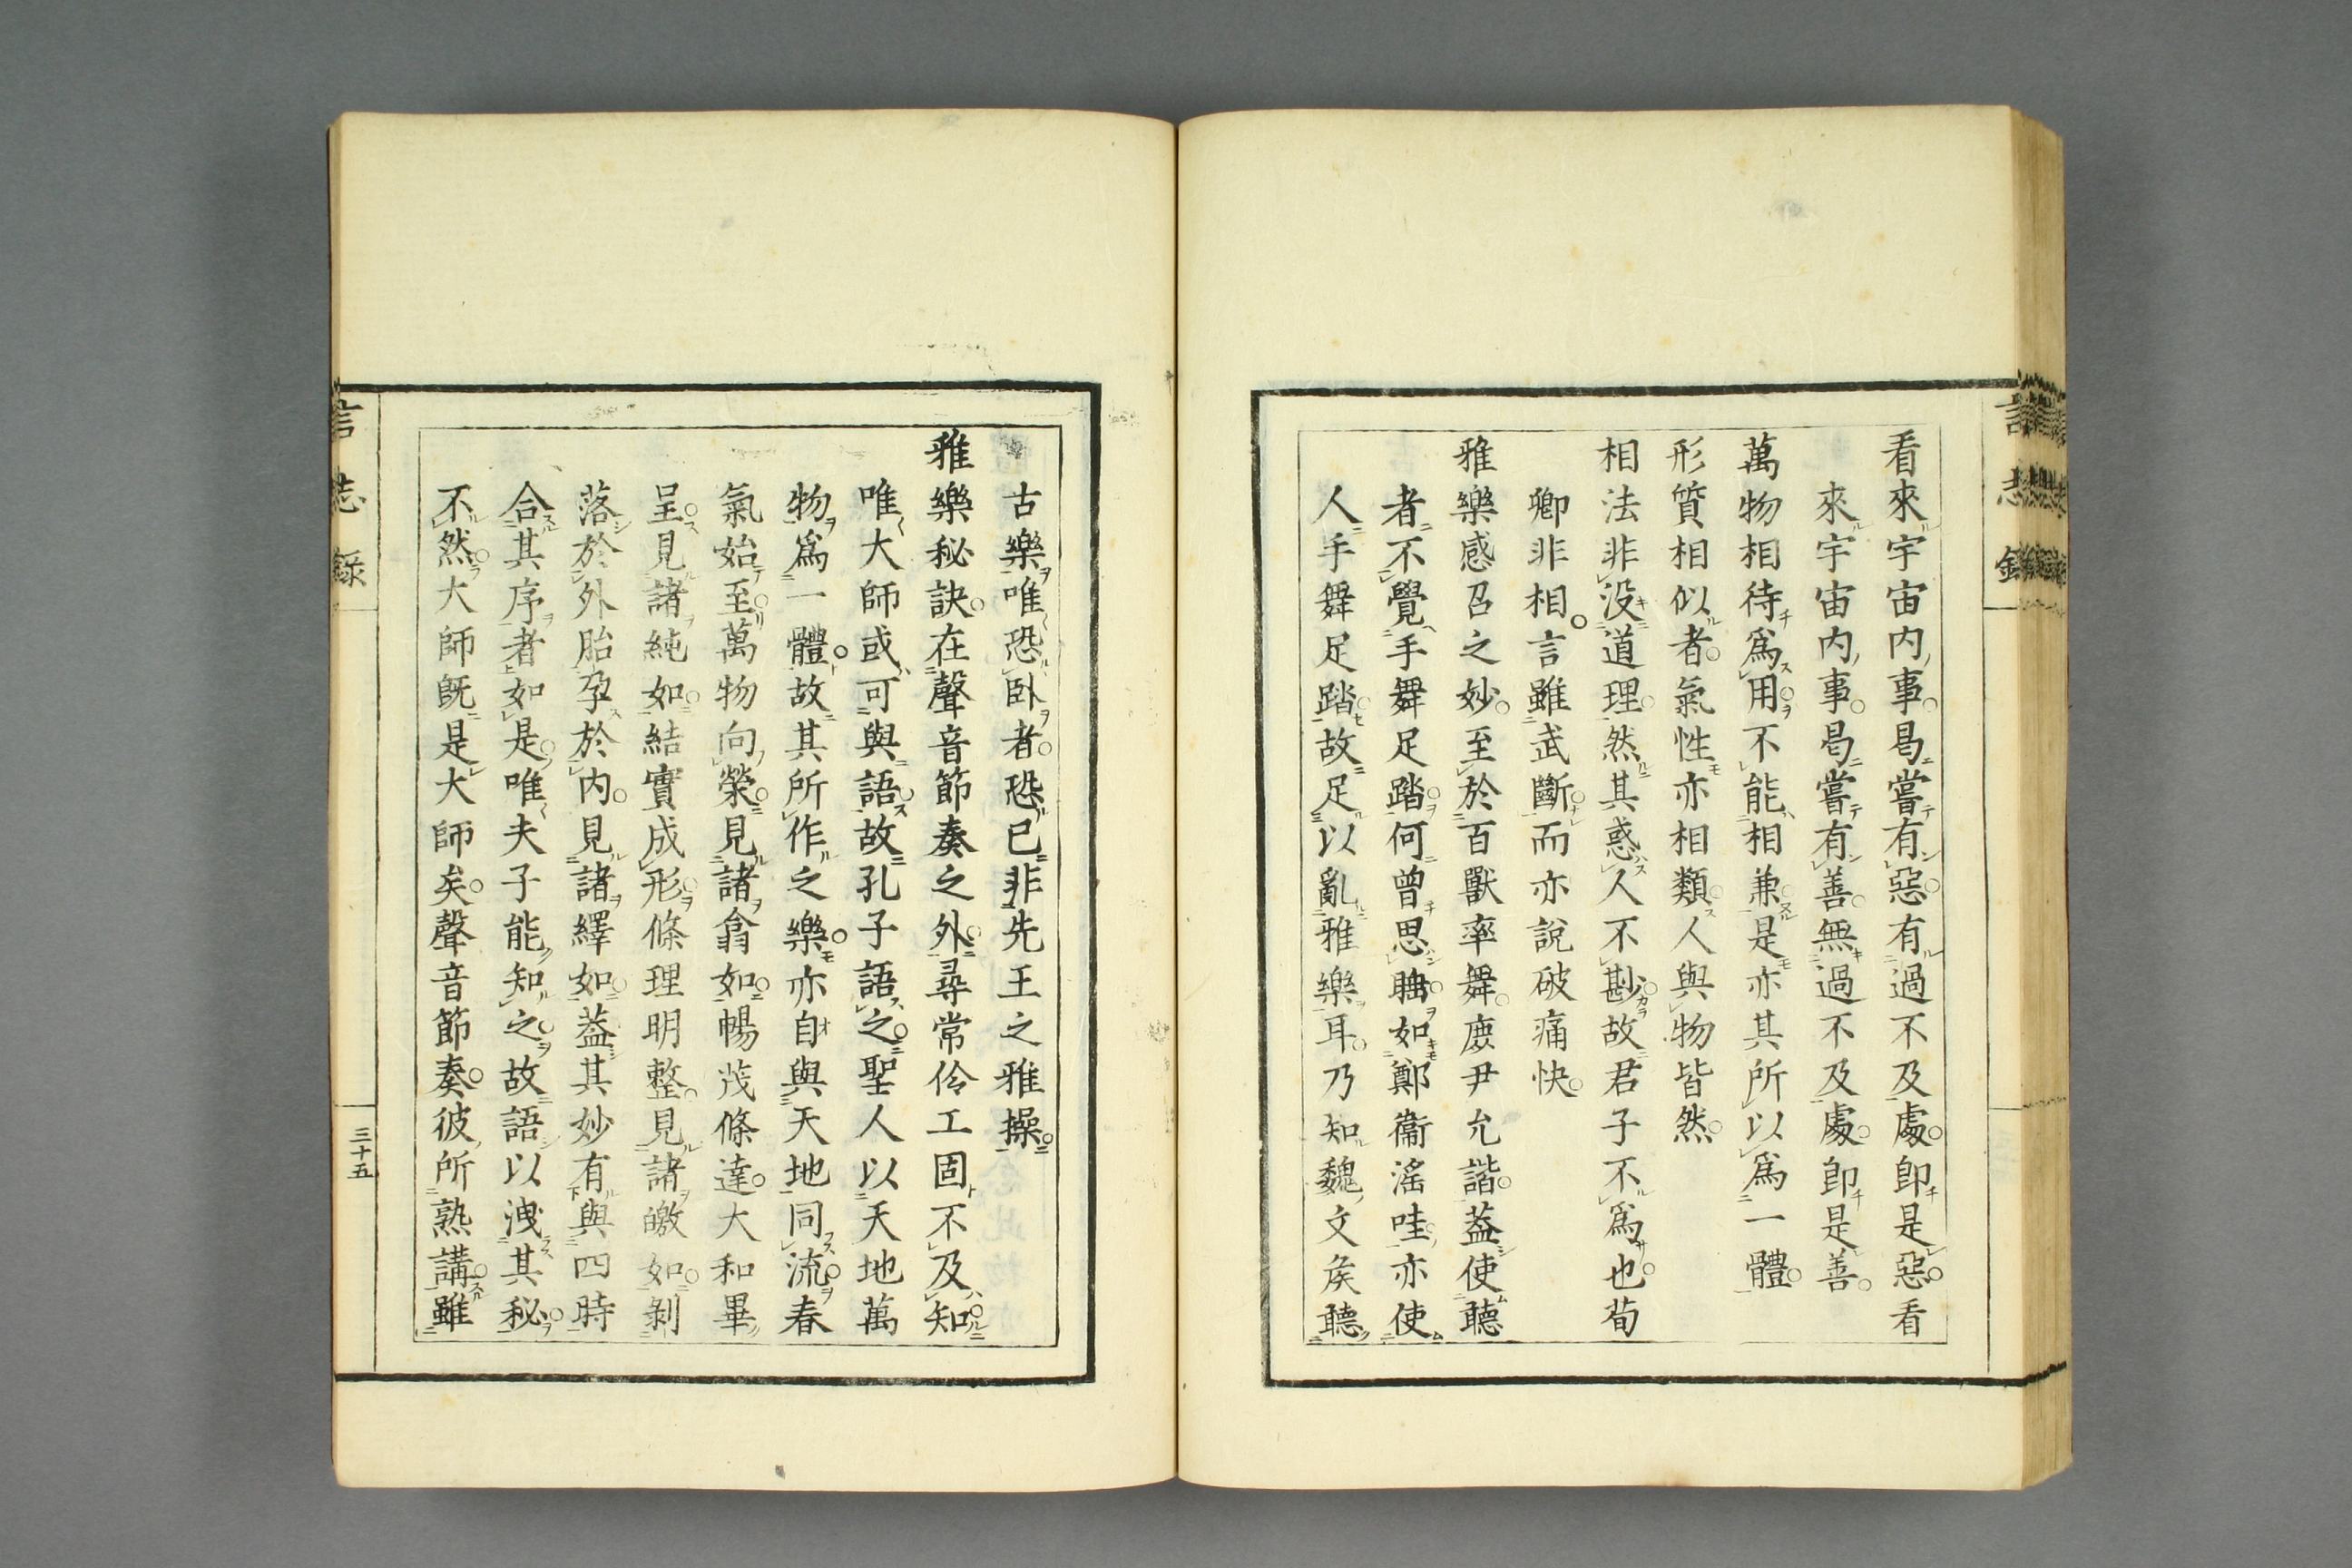 看來宇宙内事曷嘗有惡有過不及處卽是惡看
來宇宙内事曷嘗有善無過不及處卽是善
萬物相待爲用不能相兼是亦其所以爲一體
形質相似者氣性亦相類人與物皆然
相法非没道理然其惑人不尠故君子不爲也荀
卿非相言雖武斷而亦說破痛快
雅樂感召之妙至於百獸率舞庶尹允諧葢使聽
者不覺手舞足踏何曾思睡如鄭衞滛哇亦使
人手舞足踏故足以亂雅樂耳乃知魏文矦聽
古樂唯恐臥者恐已非先王之雅操
雅樂秘訣在聲音節奏之外尋常伶工固不及知
唯大師或可與語故孔子語之聖人以天地萬
物爲一體故其所作之樂亦自與天地同流春
氣始至萬物向榮見諸翕如暢茂條達大和畢
呈見諸純如結實成形條理明整見諸皦如剝
落於外胎孕於内見諸繹如葢其妙有與四時
合其序者如是唯夫子能知之故語以洩其秘
不然大師既是大師矣聲音節奏彼所熟講雖
言志錄
三十五